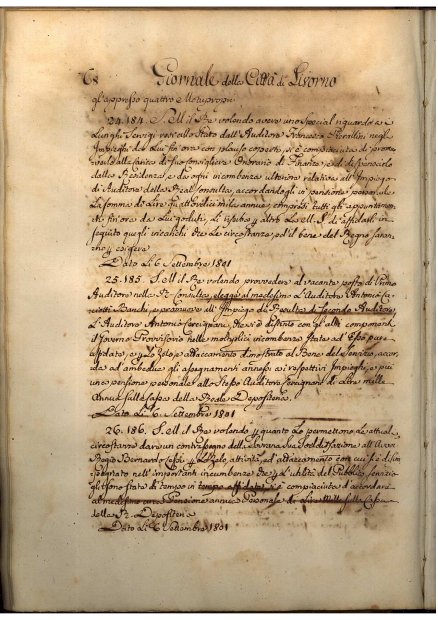 68 Giornale della Città di Livorno
gl'appresso quattro Motuproprj
24. 184. S. M. il Re volendo avere uno special riguardo ai
Lunghi Servigi resi allo Stato dell'Auditore Francesco negl'
Impieghi da Lui fin'ora con plauso coperti, si è compiaciuta di promo
verlo alla carica di Suo Consigliere Onorario di Finanze, e di dispensarlo
dalla Residenza, e da ogni incumbenza ulteriore relativa all'Impiego
di Auditore della Real Consulta, accordandogli in pensione personale
la somma di Lire mila annue, compresi tutti gli appuntamen
ti fin'ora da Lui goduti, li
seguito quegl'incarichi che le circostanze, ed il bene del Regno saran
no esigere
Dato Li 6. Settembre 1801
25. 185. S. M. il Re volendo provvedere al vacante posto di Primo
Auditore nella R. Consulta, elegge al medesimo l'Auditore Antonio
Banchi, e promuove all'Impiego da di Secondo Auditore
L'Auditore Antonio Cercignani, che si è distinto con gl'altri componenti
il Governo Provvisorio nelle molteplici incumbenze State ad Esso pure
affidate, e Zelo, e attaccamento dimostrato al Bene del servizio, accor
da ad ambedue gli assegnamenti annessi ai respettivi Impieghi, e più
una pensione personale allo Stesso Auditore Cercignani di Lire mille
Annue sulla Cassa della Reale Depositeria.
Dato Li 6. Settembre 1801
26. 186. S. M. il Re volendo quanto Lo permettono Le attuali
circostanze dare un contrassegno della Sovrana Sua Soddisfazione all'
Regio Bernardo Lessi Zelo, attività, ed attaccamento con cui si è disim
pegnato nell'importanti incumbenze che l'utilità del Pubblico servizio
gli sono state di tempo in tempo affidate, si è compiaciuta d'accordare
al medesimo una Pensione annua Personale di Lire Mille sulla Cassa
della R. Depositeria
Dato Li 6 Settembre 1801